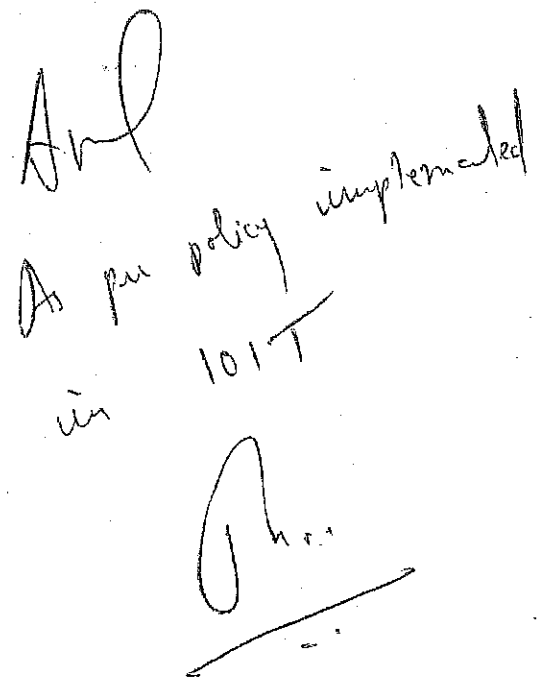 Anil
As per policy implemented
in IOIT